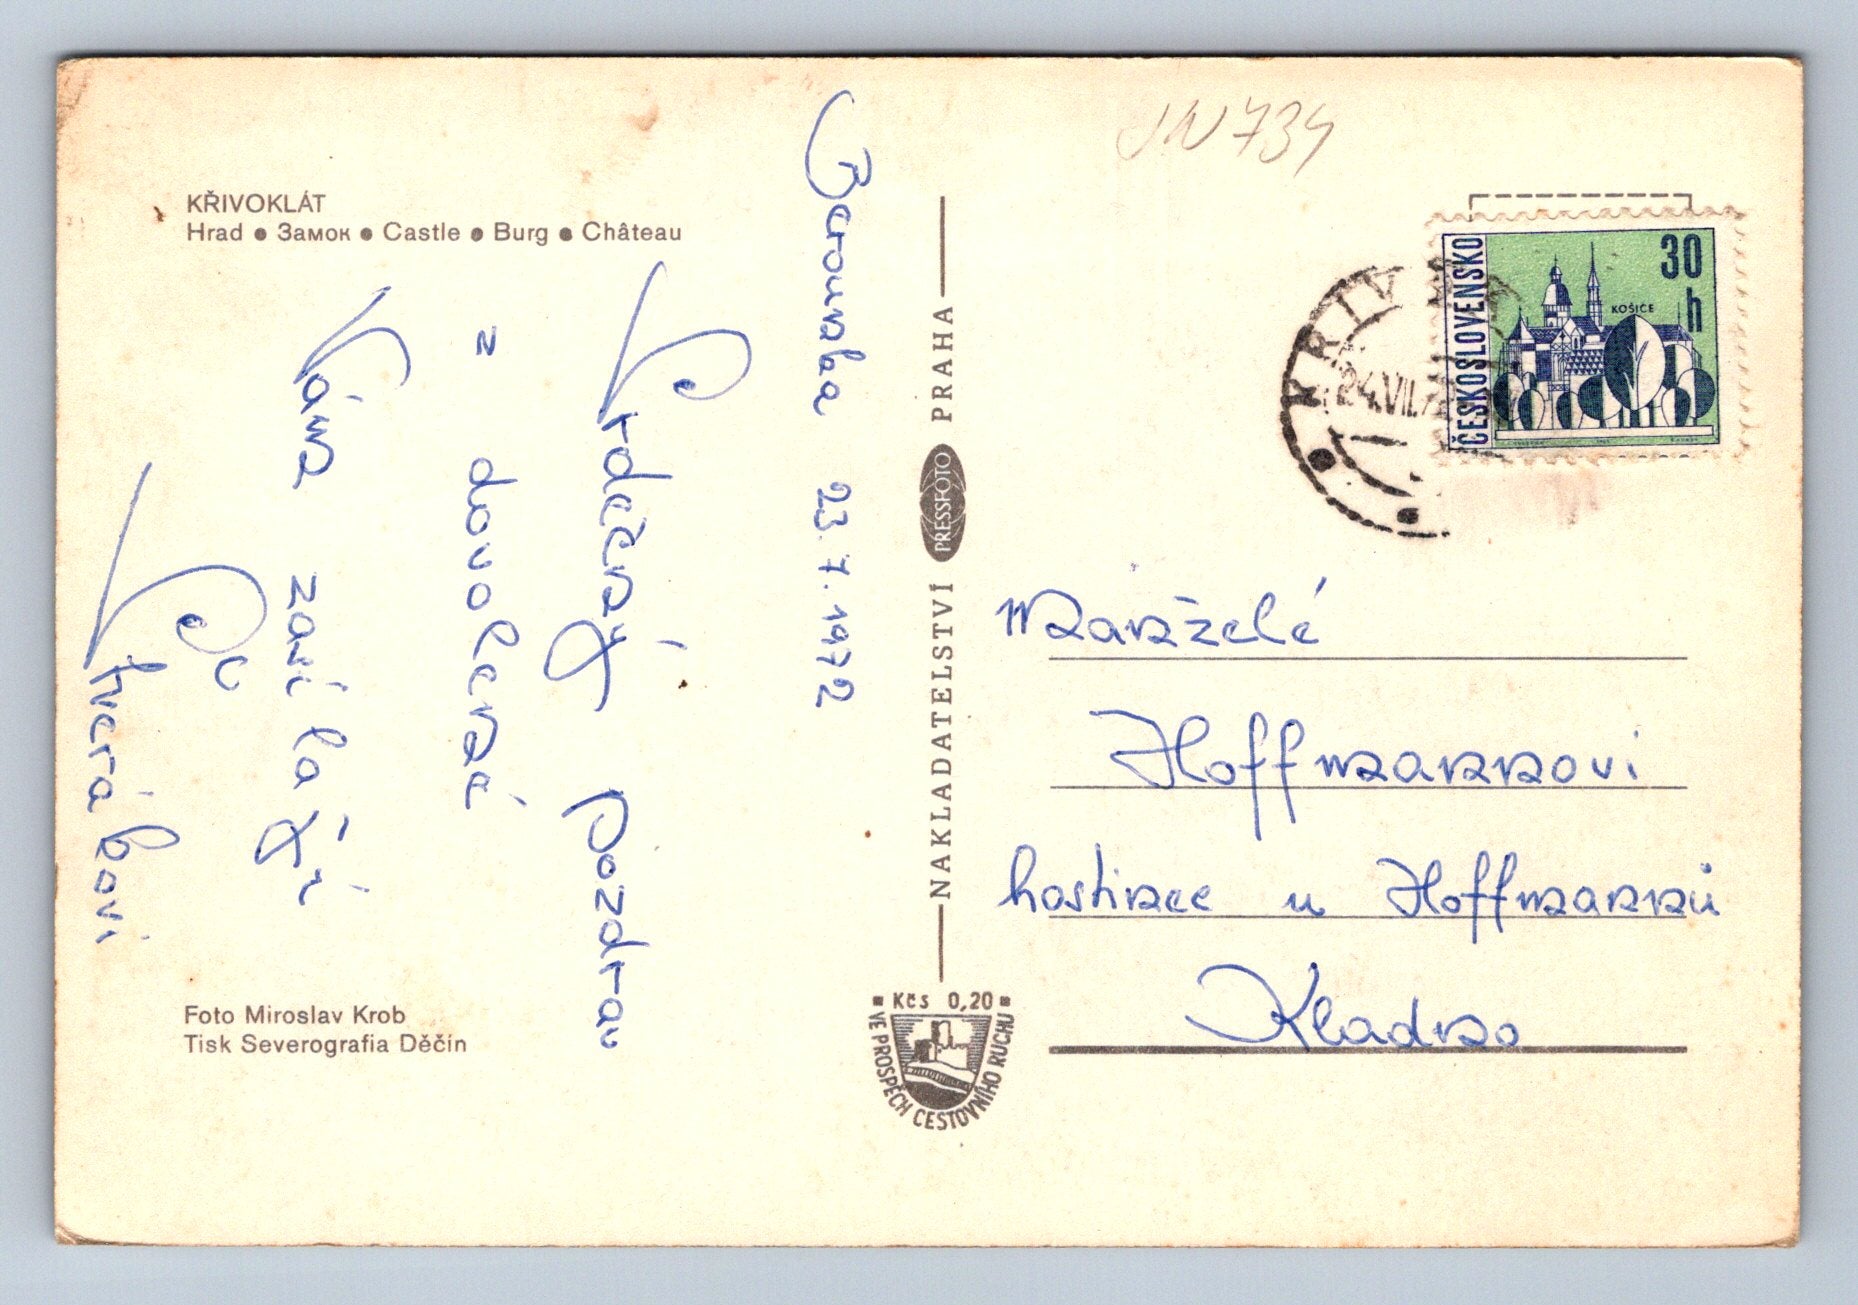 KŘIVOKLÁT
Hrad ● Замок ● Castle ● Burg ● Château
Berounka 23.7.1972
Srdečný pozdrav
z dovolené
Vám
zasílají
Foto Miroslav Krob
Tisk Severografia Děčín
NAKLADATELSTVÍ PRESSFOTO PRAHA
Kčs 0,20
VE PROSPĚCH CESTOVNÍHO RUCHU
JW734
ČESKOSLOVENSKO
30
h
KOŠICE
24.VII.
Manželé
Hoffmannovi
hostinec u Hoffmannů
Kladno